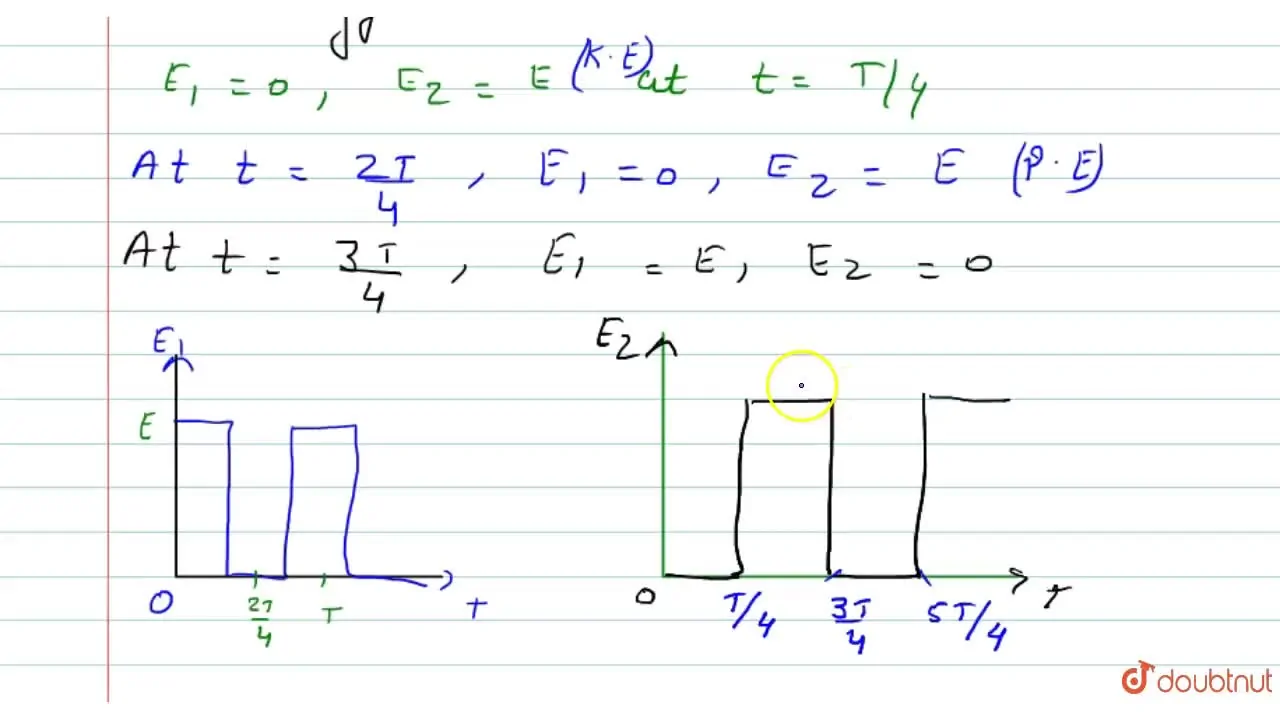 E₁ = 0, E₂ = E (K.E) at t = T/4
At t = 2T/4, E₁ = 0, E₂ = E (P.E)
At t = 3T/4, E₁ = E, E₂ = 0
E₁ E₂
E
0 2T/4 T T
0 T/4 3T/4 5T/4 T
doubtnut